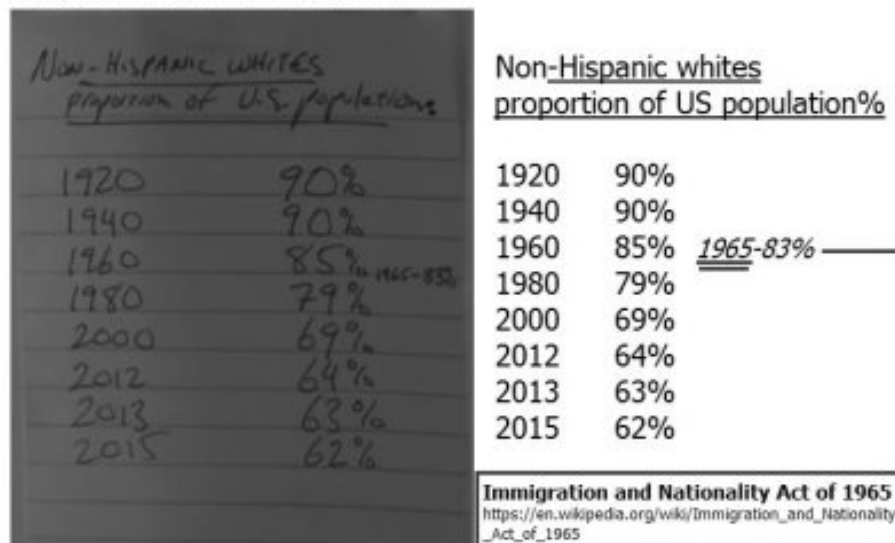 NON-HISPANIC WHITES
proportion of U.S. population
1920 90%
1940 90%
1960 85% 1965-83%
1980 79%
2000 69%
2012 64%
2013 63%
2015 62%
Non-Hispanic whites
proportion of US population%
1920 90%
1940 90%
1960 85% 1965-83%
1980 79%
2000 69%
2012 64%
2013 63%
2015 62%
Immigration and Nationality Act of 1965
https://en.wikipedia.org/wiki/Immigration_and_Nationality
_Act_of_1965